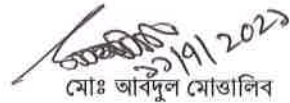 ২১/৯/২০২১
মোঃ আবদুল মোত্তালিব